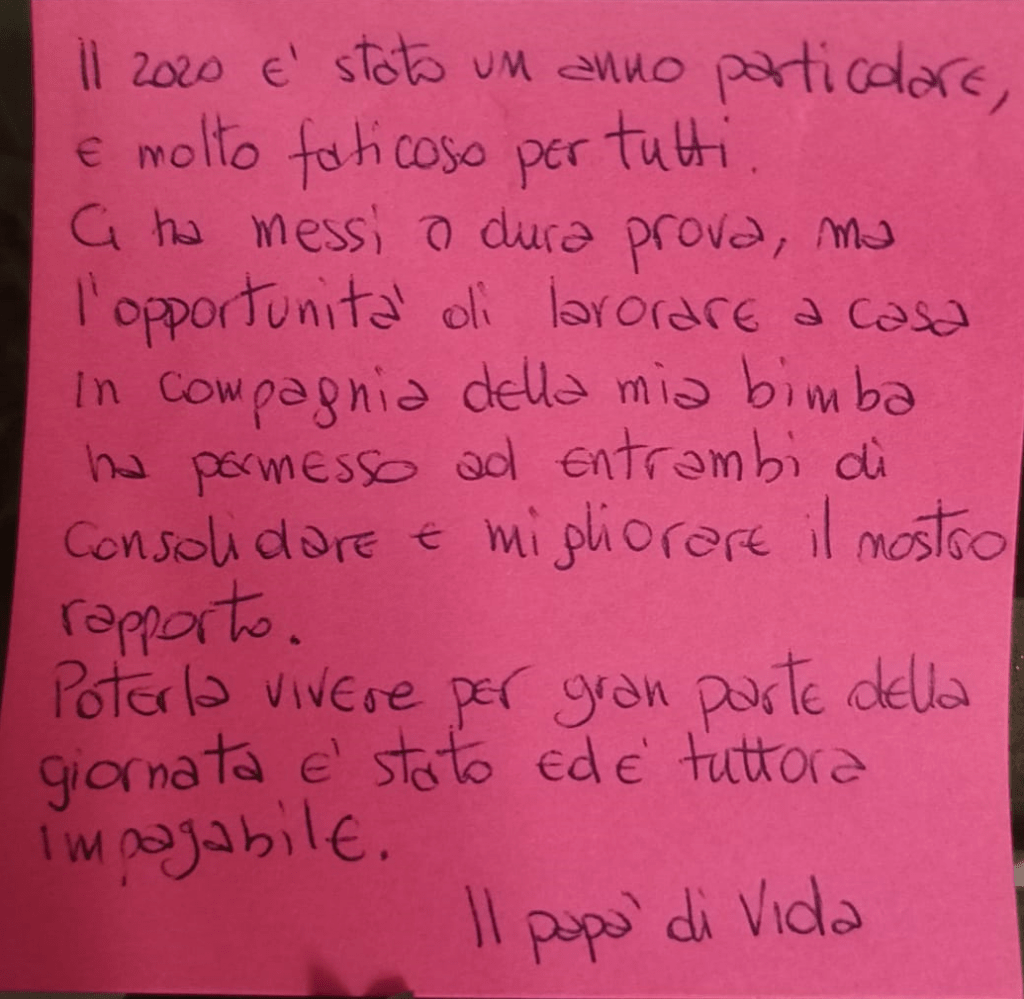 Il 2020 E' stato un anno particolare,
e molto faticoso per tutti.
Ci ha messi a dura prova, ma
l'opportunità di lavorare a casa
in compagnia della mia bimba
ha permesso ad entrambi di
consolidare e migliorare il nostro
rapporto.
Poterla vivere per gran parte della
giornata E' stato ed E' tuttora
impagabile.
Il papà di Viola